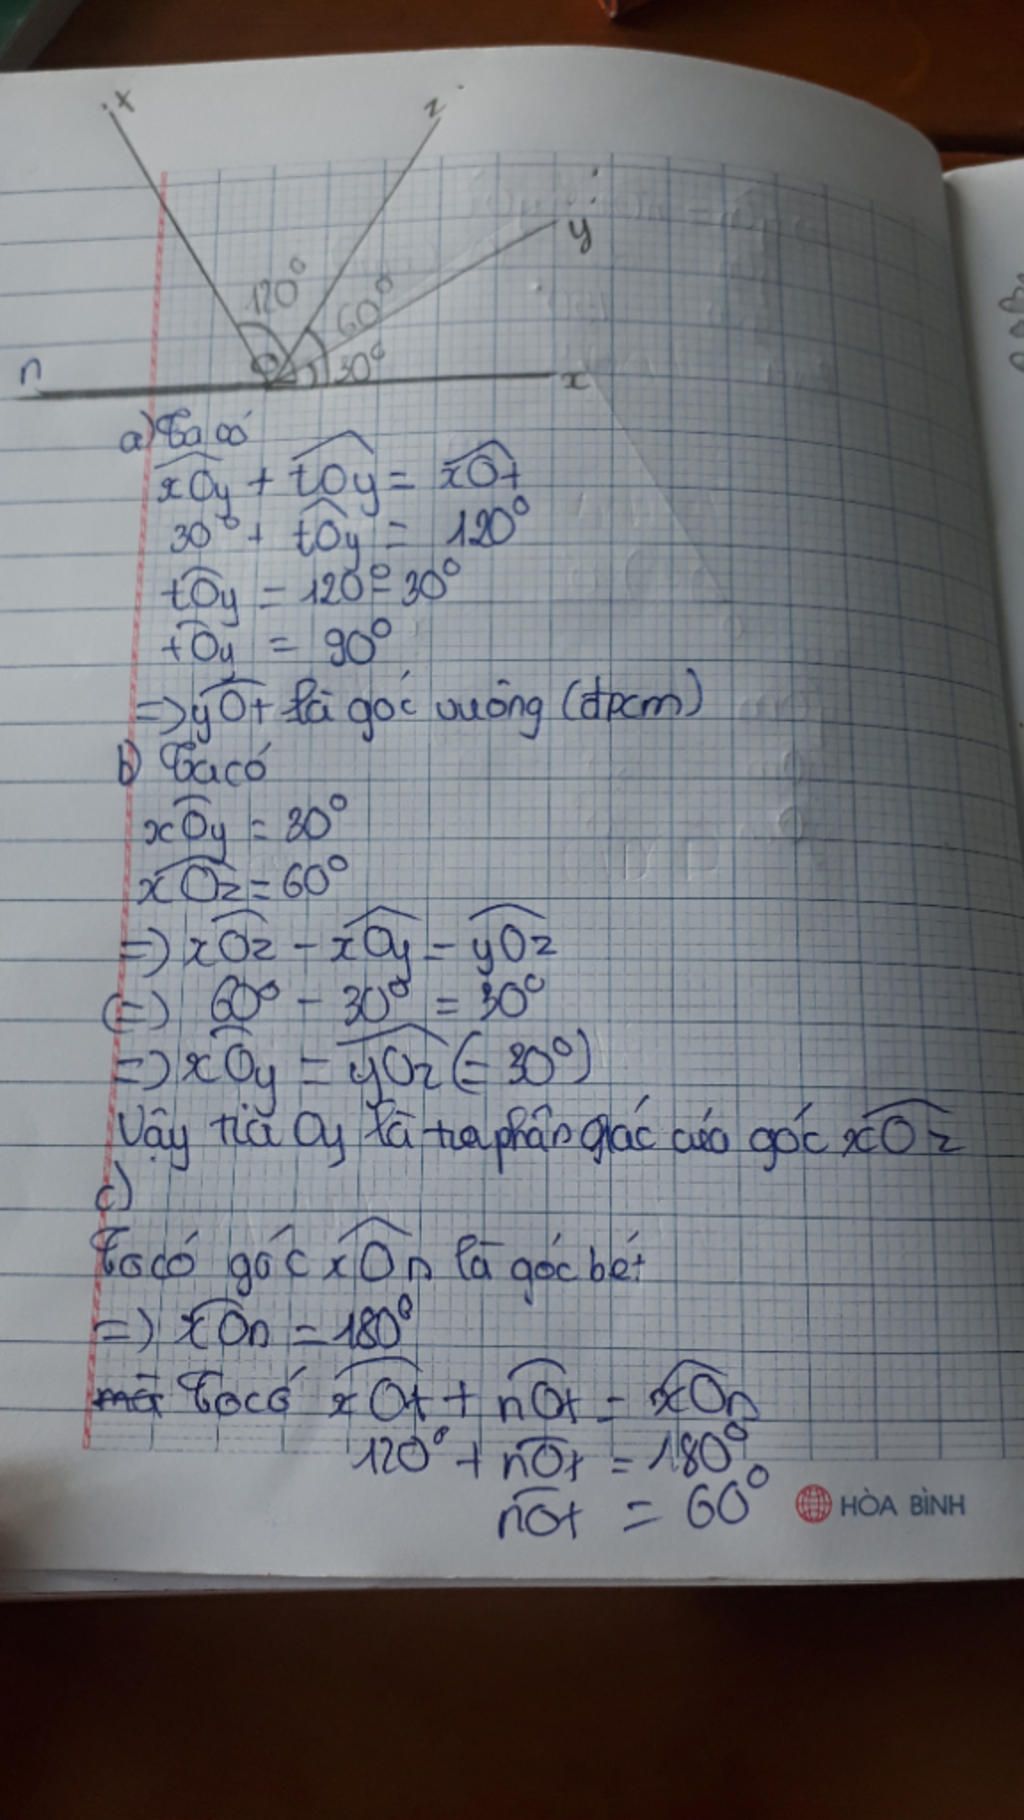 t
z
y
120°
60°
30°
n
O
x
a) Ta có
xOy + tOy = xOt
30° + tOy = 120°
tOy = 120° - 30°
tOy = 90°
=> yOt là góc vuông (đpcm)
b) Ta có
xOy = 30°
xOz = 60°
=> xOz - xOy = yOz
(=) 60° - 30° = 30°
=> xOy = yOz (= 30°)
Vậy tia Oy là tia phân giác của góc xOz
c)
Ta có góc xOn là góc bẹt
=> xOn = 180°
mà Ta có xOt + nOt = xOn
120° + nOt = 180°
nOt = 60°
HÒA BÌNH